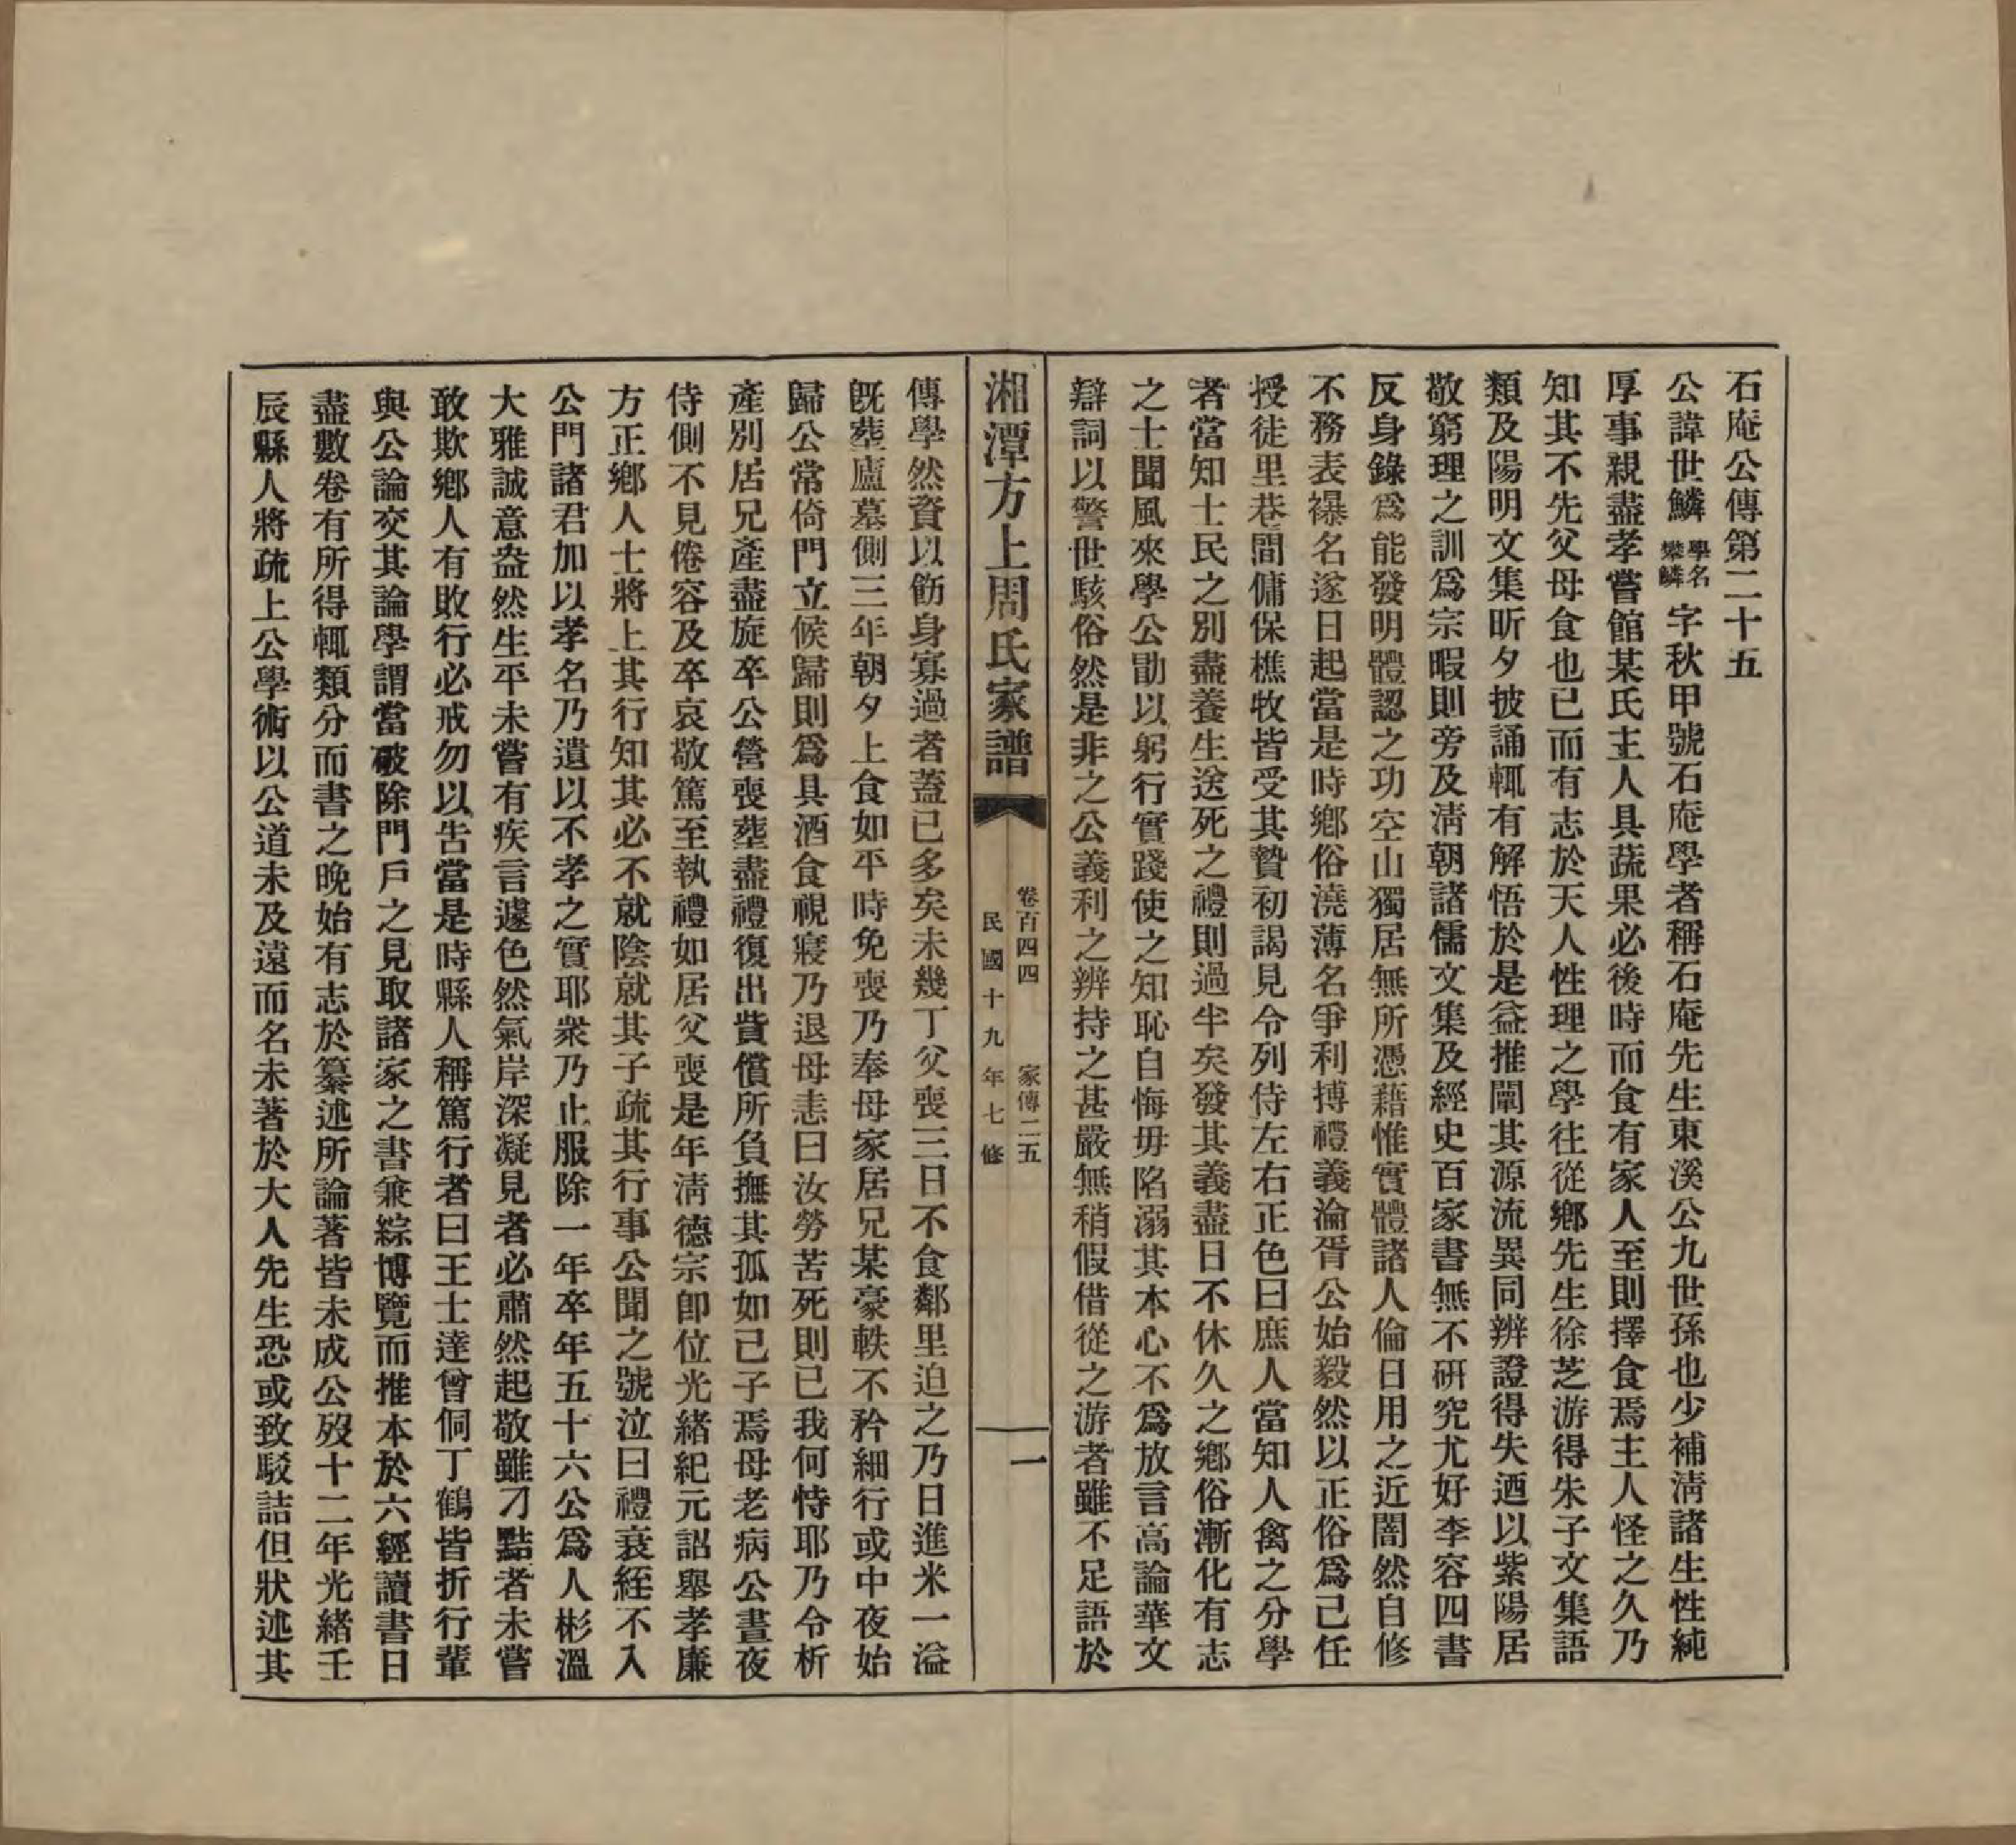 石庵公傳第二十五
公諱世鱗學名
樊鱗字秋甲號石庵學者稱石庵先生東溪公九世孫也少補淸諸生性純
厚事親盡孝嘗館某氏主人具蔬果必後時而食有家人至則擇食焉主人怪之久乃
知其不先父母食也已而有志於天人性理之學往從鄉先生徐芝游得朱子文集語
類及陽明文集昕夕披誦輒有解悟於是益推闡其源流異同辨證得失迺以紫陽居
敬窮理之訓爲宗暇則旁及淸朝諸儒文集及經史百家書無不硏究尤好李容四書
反身錄爲能發明體認之功空山獨居無所憑藉惟實體諸人倫日用之近闇然自修
不務表襮名遂日起當是時鄉俗澆薄名爭利搏禮義淪胥公始毅然以正俗爲己任
授徒里巷間傭保樵牧皆受其贄初謁見令列侍左右正色曰庶人當知人禽之分學
者當知士民之別盡養生送死之禮則過半矣發其義盡日不休久之鄉俗漸化有志
之士聞風來學公勖以躬行實踐使之知恥自悔毋陷溺其本心不爲放言高論華文
辯詞以警世駭俗然是非之公義利之辨持之甚嚴無稍假借從之游者雖不足語於
湘潭方上周氏家譜
卷百四四　家傳二五
民國十九年七修
一
傳學然資以飭身寡過者蓋已多矣未幾丁父喪三日不食鄰里迫之乃日進米一溢
旣葬廬墓側三年朝夕上食如平時免喪乃奉母家居兄某豪軼不矜細行或中夜始
歸公常倚門立候歸則爲具酒食視寢乃退母恚曰汝勞苦死則已我何恃耶乃令析
產別居兄產盡旋卒公營喪葬盡禮復出貲償所負撫其孤如己子焉母老病公晝夜
侍側不見倦容及卒哀敬篤至執禮如居父喪是年淸德宗卽位光緖紀元詔舉孝廉
方正鄉人士將上其行知其必不就陰就其子疏其行事公聞之號泣曰禮衰絰不入
公門諸君加以孝名乃遺以不孝之實耶衆乃止服除一年卒年五十六公爲人彬溫
大雅誠意盎然生平未嘗有疾言遽色然氣岸深凝見者必肅然起敬雖刁黠者未嘗
敢欺鄉人有敗行必戒勿以吿當是時縣人稱篤行者曰王士達曾侗丁鶴皆折行輩
與公論交其論學謂當破除門戶之見取諸家之書兼綜博覽而推本於六經讀書日
盡數卷有所得輒類分而書之晚始有志於纂述所論著皆未成公歿十二年光緖壬
辰縣人將疏上公學術以公道未及遠而名未著於大人先生恐或致駁詰但狀述其